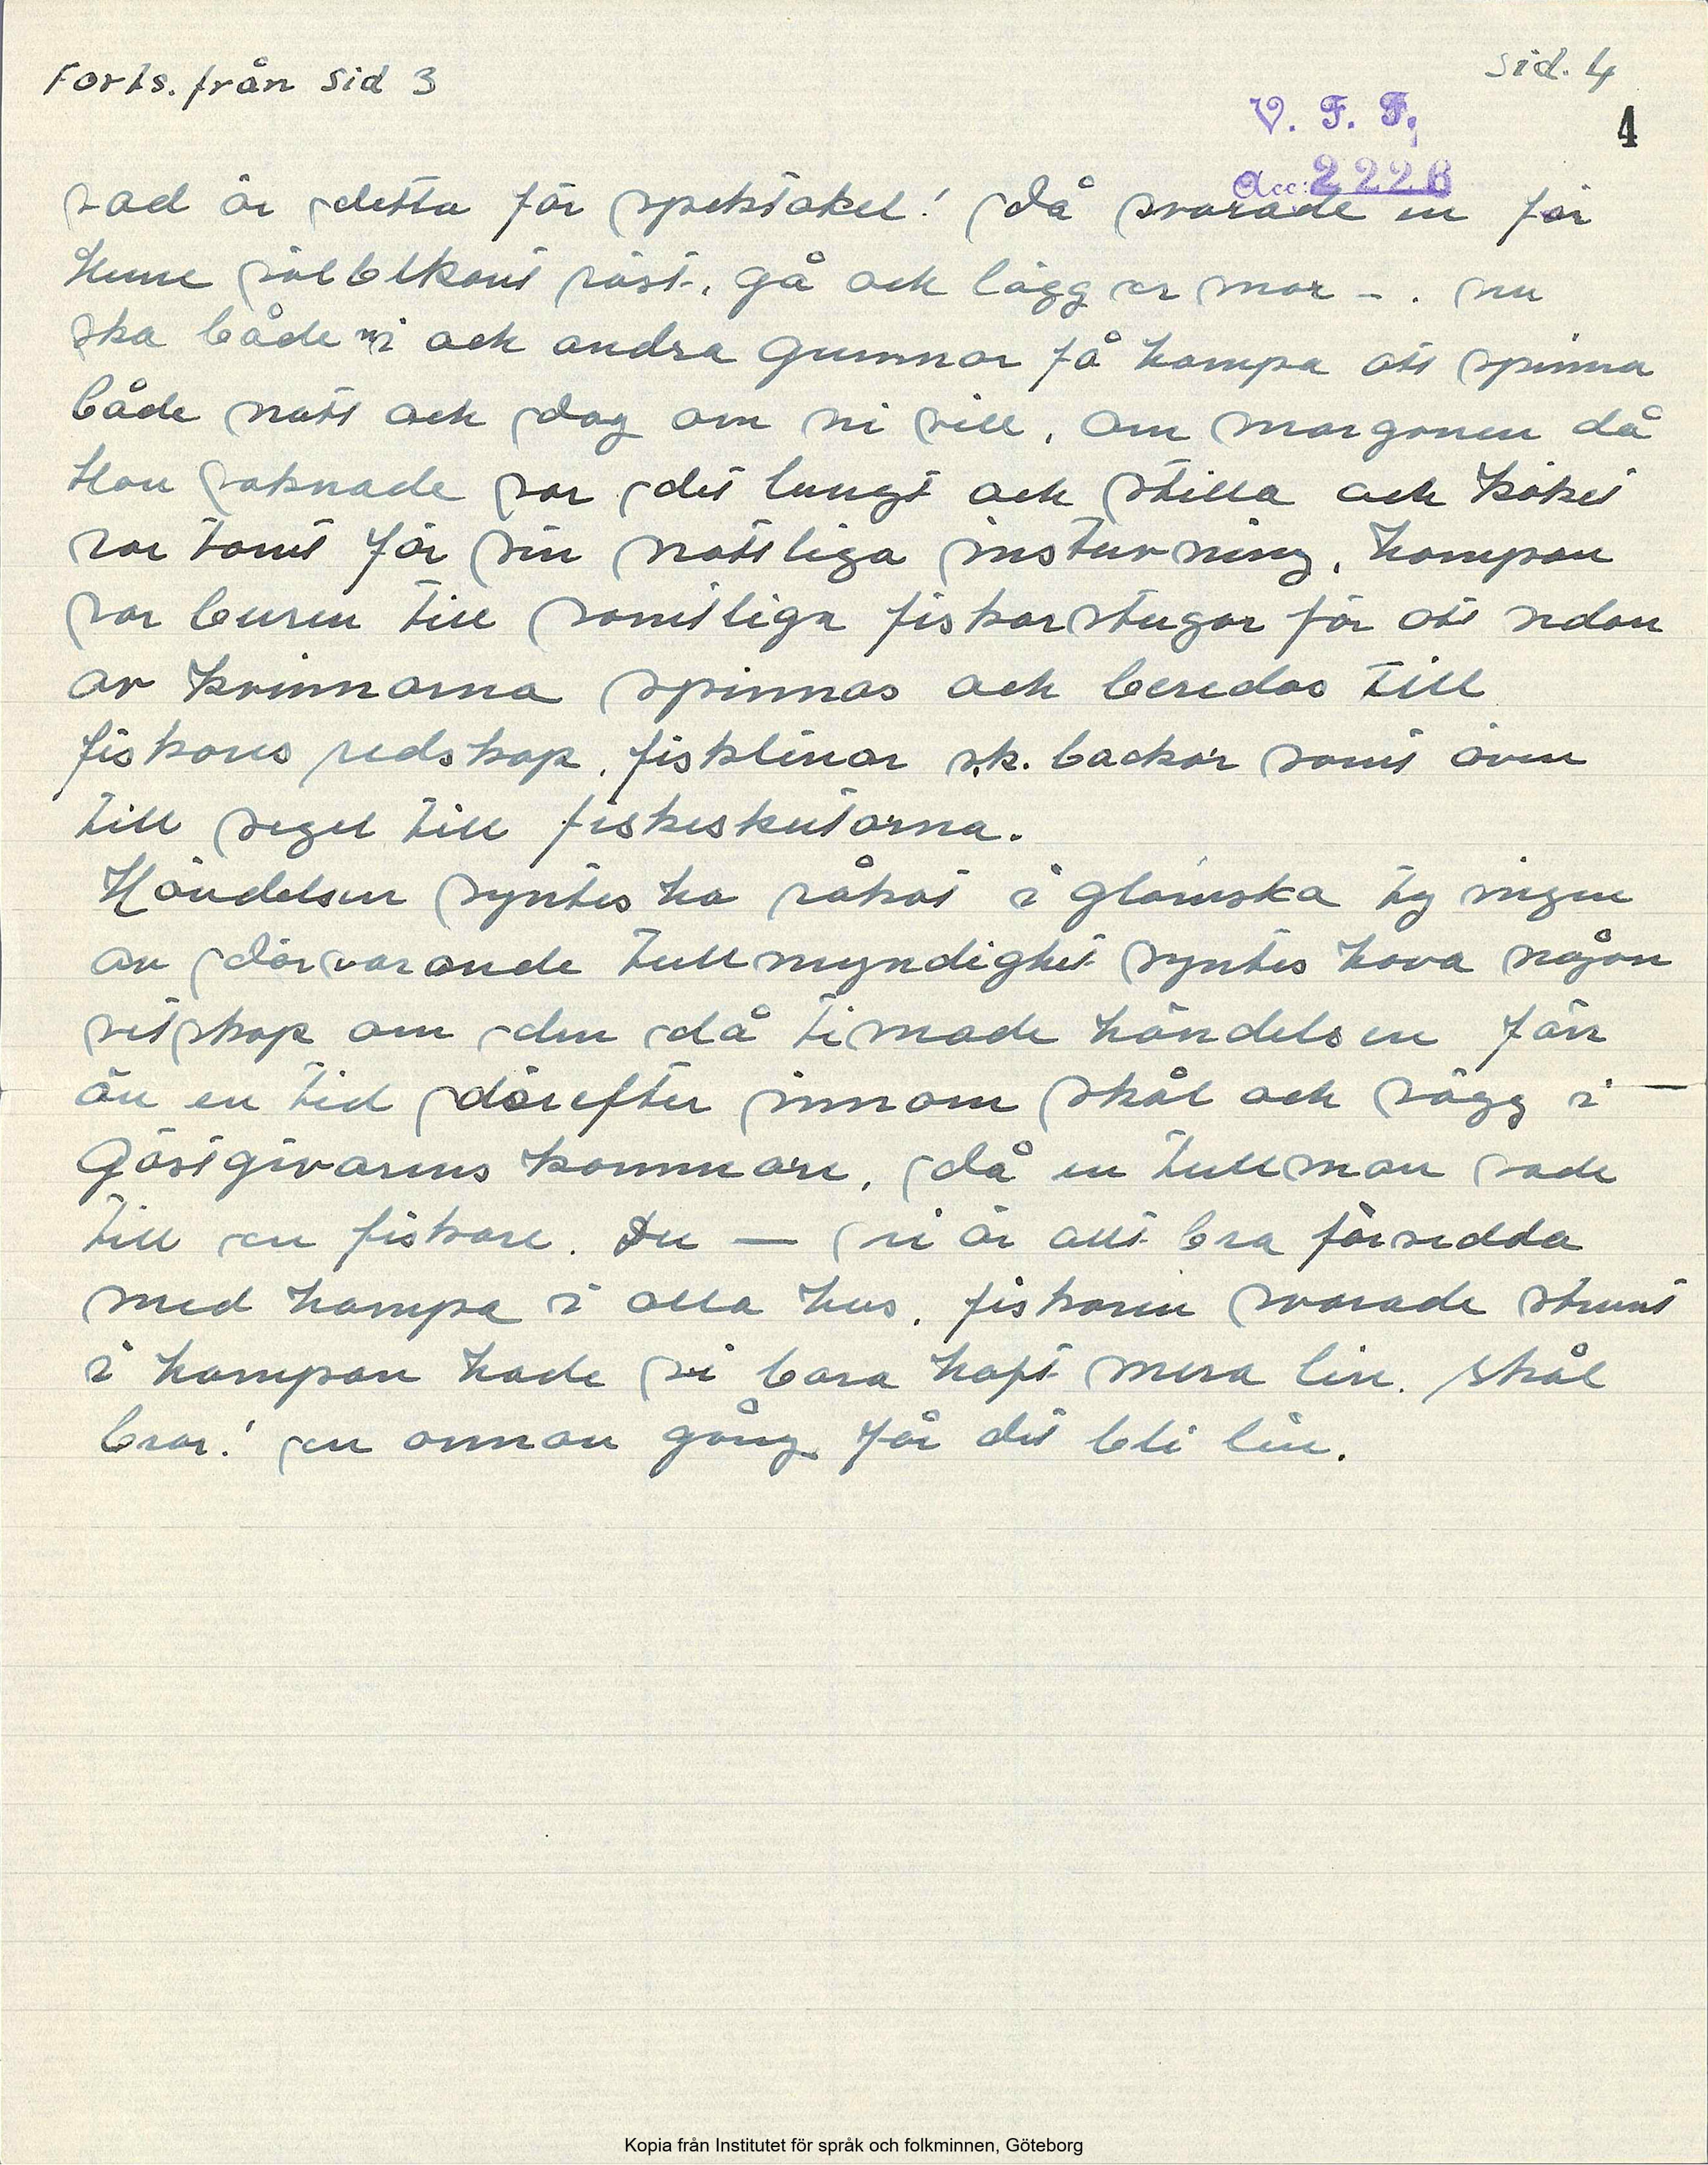 Forts. från sid 3
sid. 4
V. F. F.
4
Acc: 2226
vad är detta för spektakel! då svarade en för
henne välbekant röst, gå och lägg er mor -. nu
ska både ni och andra gummor få hampa att spinna
både natt och dag om ni vill, om morgonen då
Hon vaknade var det lungt och stilla och köket
var tomt för sin nattliga instuvning, hampan
var buren till samtliga fiskarstugor för att sedan
av kvinnorna spinnas och beredas till
fiskares redskap, fisklinor s.k. backor samt även
till segel till fiskeskutorna.
Händelsen syntes ha råkat i glömska ty ingen
av därvarande tullmyndighet syntes hava någon
vetskap om den då timade händelsen förr
än en tid därefter innom skål och vägg i
Gästgivarens kammare, då en tullman sade
till en fiskare. Du — ni är allt bra försedda
med hampa i alla hus, fiskaren svarade strunt
i hampan hade vi bara haft mera lin. skål
bror! en annan gång får det bli lin.
Kopia från Institutet för språk och folkminnen, Göteborg